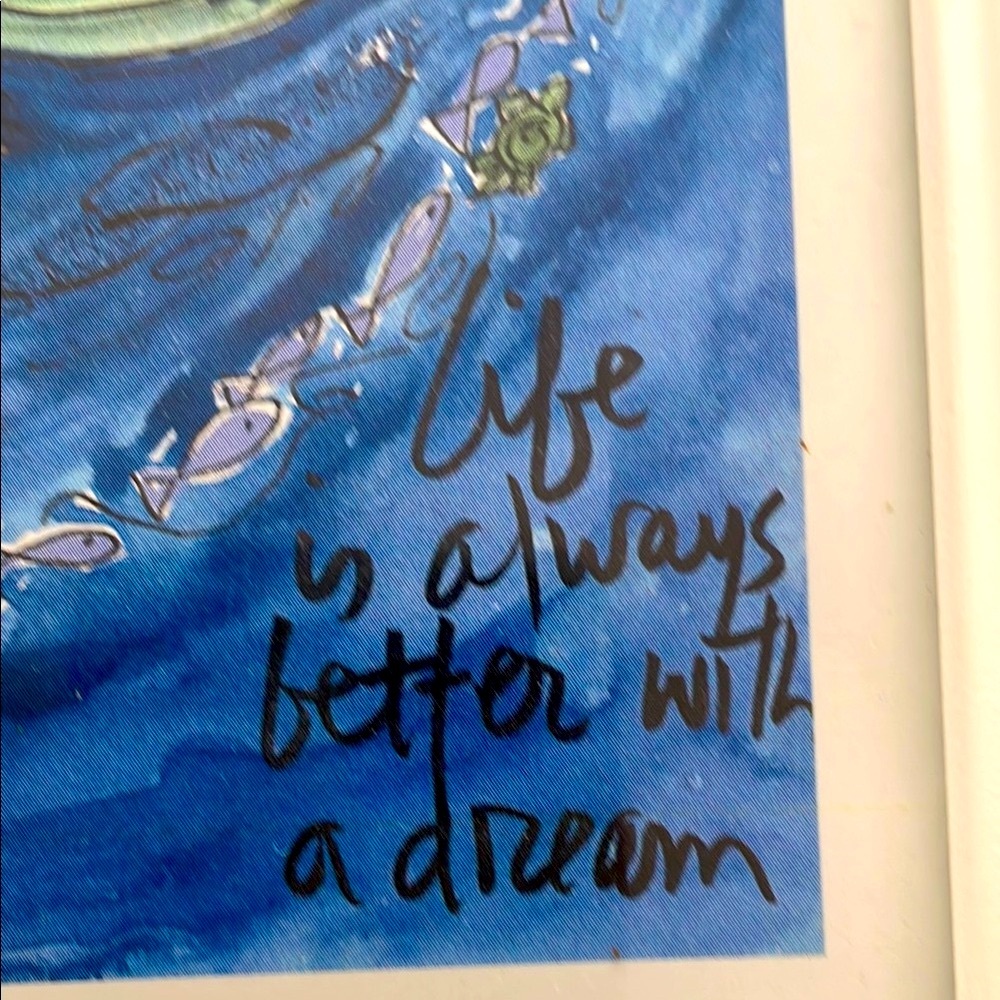 life
is always
better with
a dream